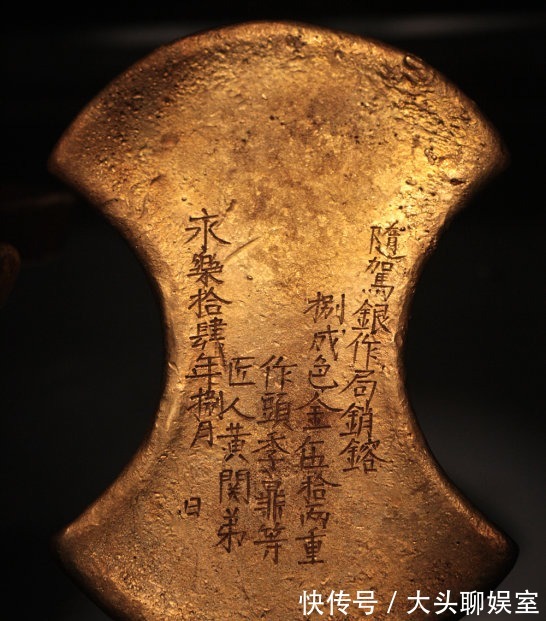 隨駕銀作局銷鎔
捌成色金伍拾兩重
作頭季鼎等
匠人黃關弟
永樂拾肆年捌月
日
快传号/大头聊娱室